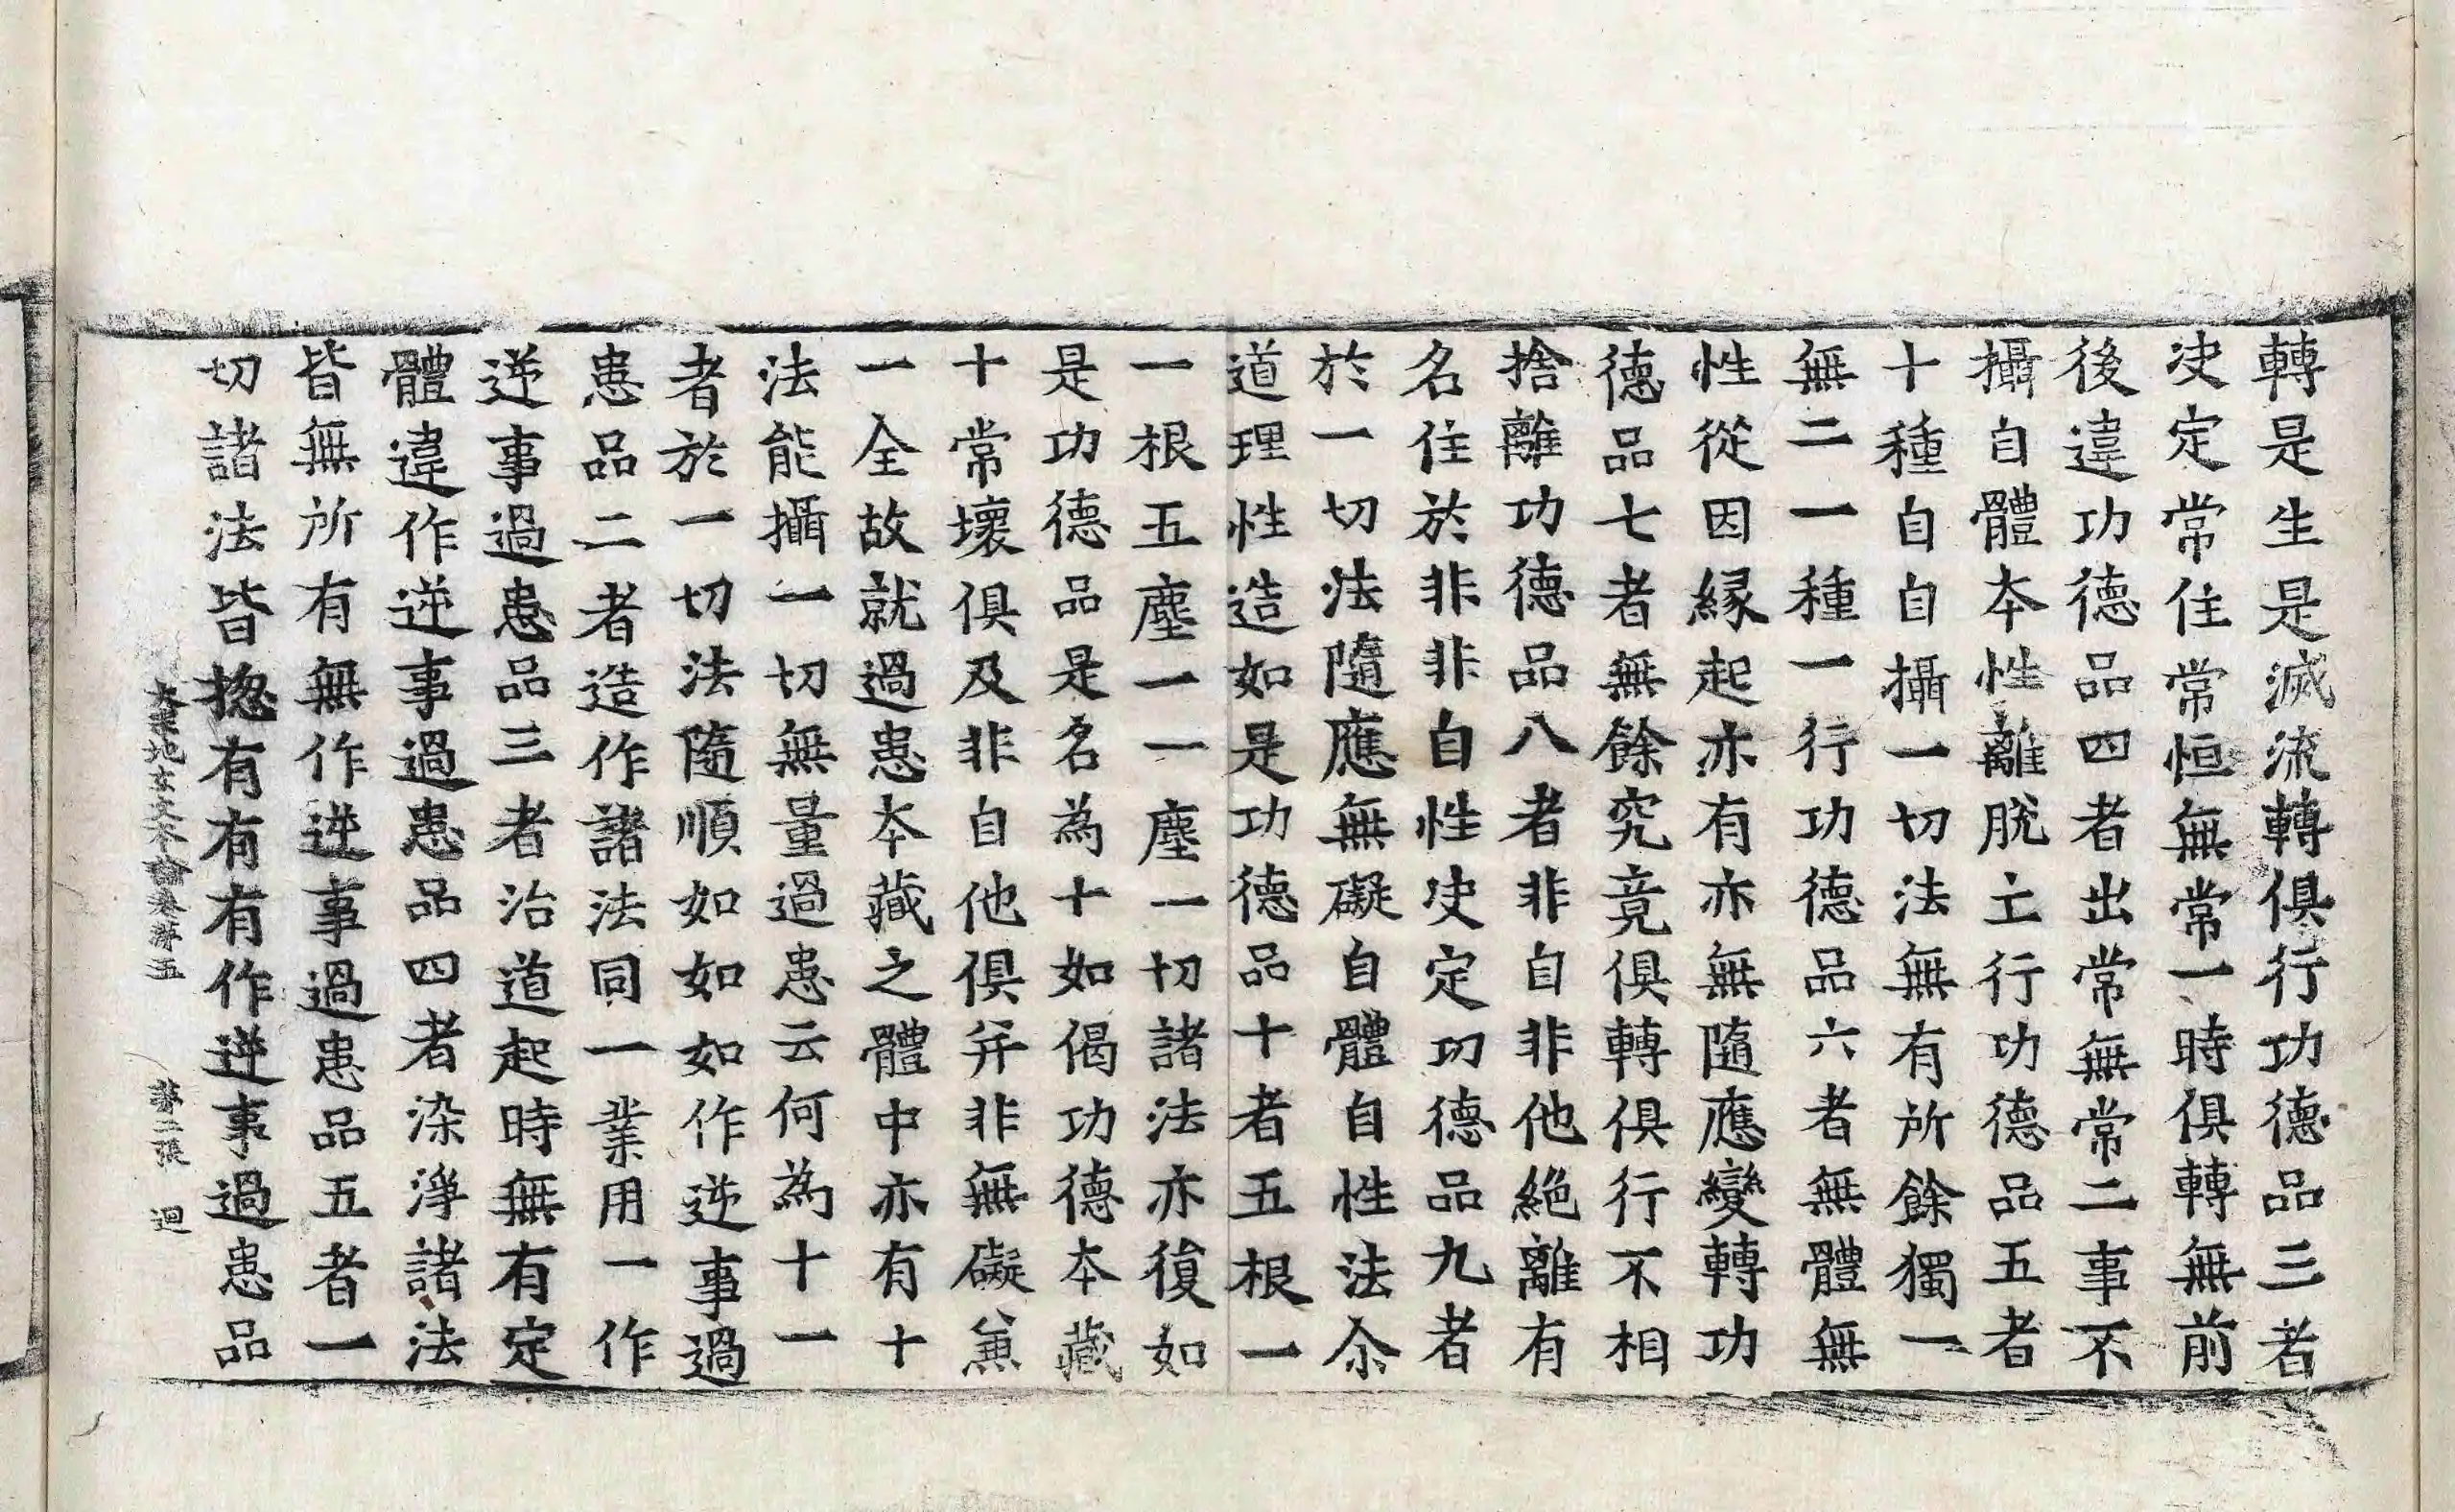 轉是生是滅流轉俱行功德品三者
决定常住常恒無常一時俱轉無前
後違功德品四者出常無常二事不
攝自體本性離脫立行功德品五者
十種自自攝一切法無有所餘獨一
無二一種一行功德品六者無體無
性從因緣起亦有亦無隨應變轉功
德品七者無餘究竟俱轉俱行不相
捨離功德品八者非自非他絕離有
名住於非非自性决定功德品九者
於一切法隨應無礙自體自性法尒
道理性造如是功德品十者五根一
一根五塵一一塵一切諸法亦復如
是功德品是名為十如偈功德本藏
十常壞俱及非自他俱并非無礙兼
一全故就過患本藏之體中亦有十
法能攝一切無量過患云何為十一
者於一切法隨順如如如作逆事過
患品二者造作諸法同一業用一作
逆事過患品三者治道起時無有定
體違作逆事過患品四者染淨諸法
皆無所有無作逆事過患品五者一
切諸法皆揔有有有作逆事過患品
大宗地玄文本論卷第五 第二張 迴